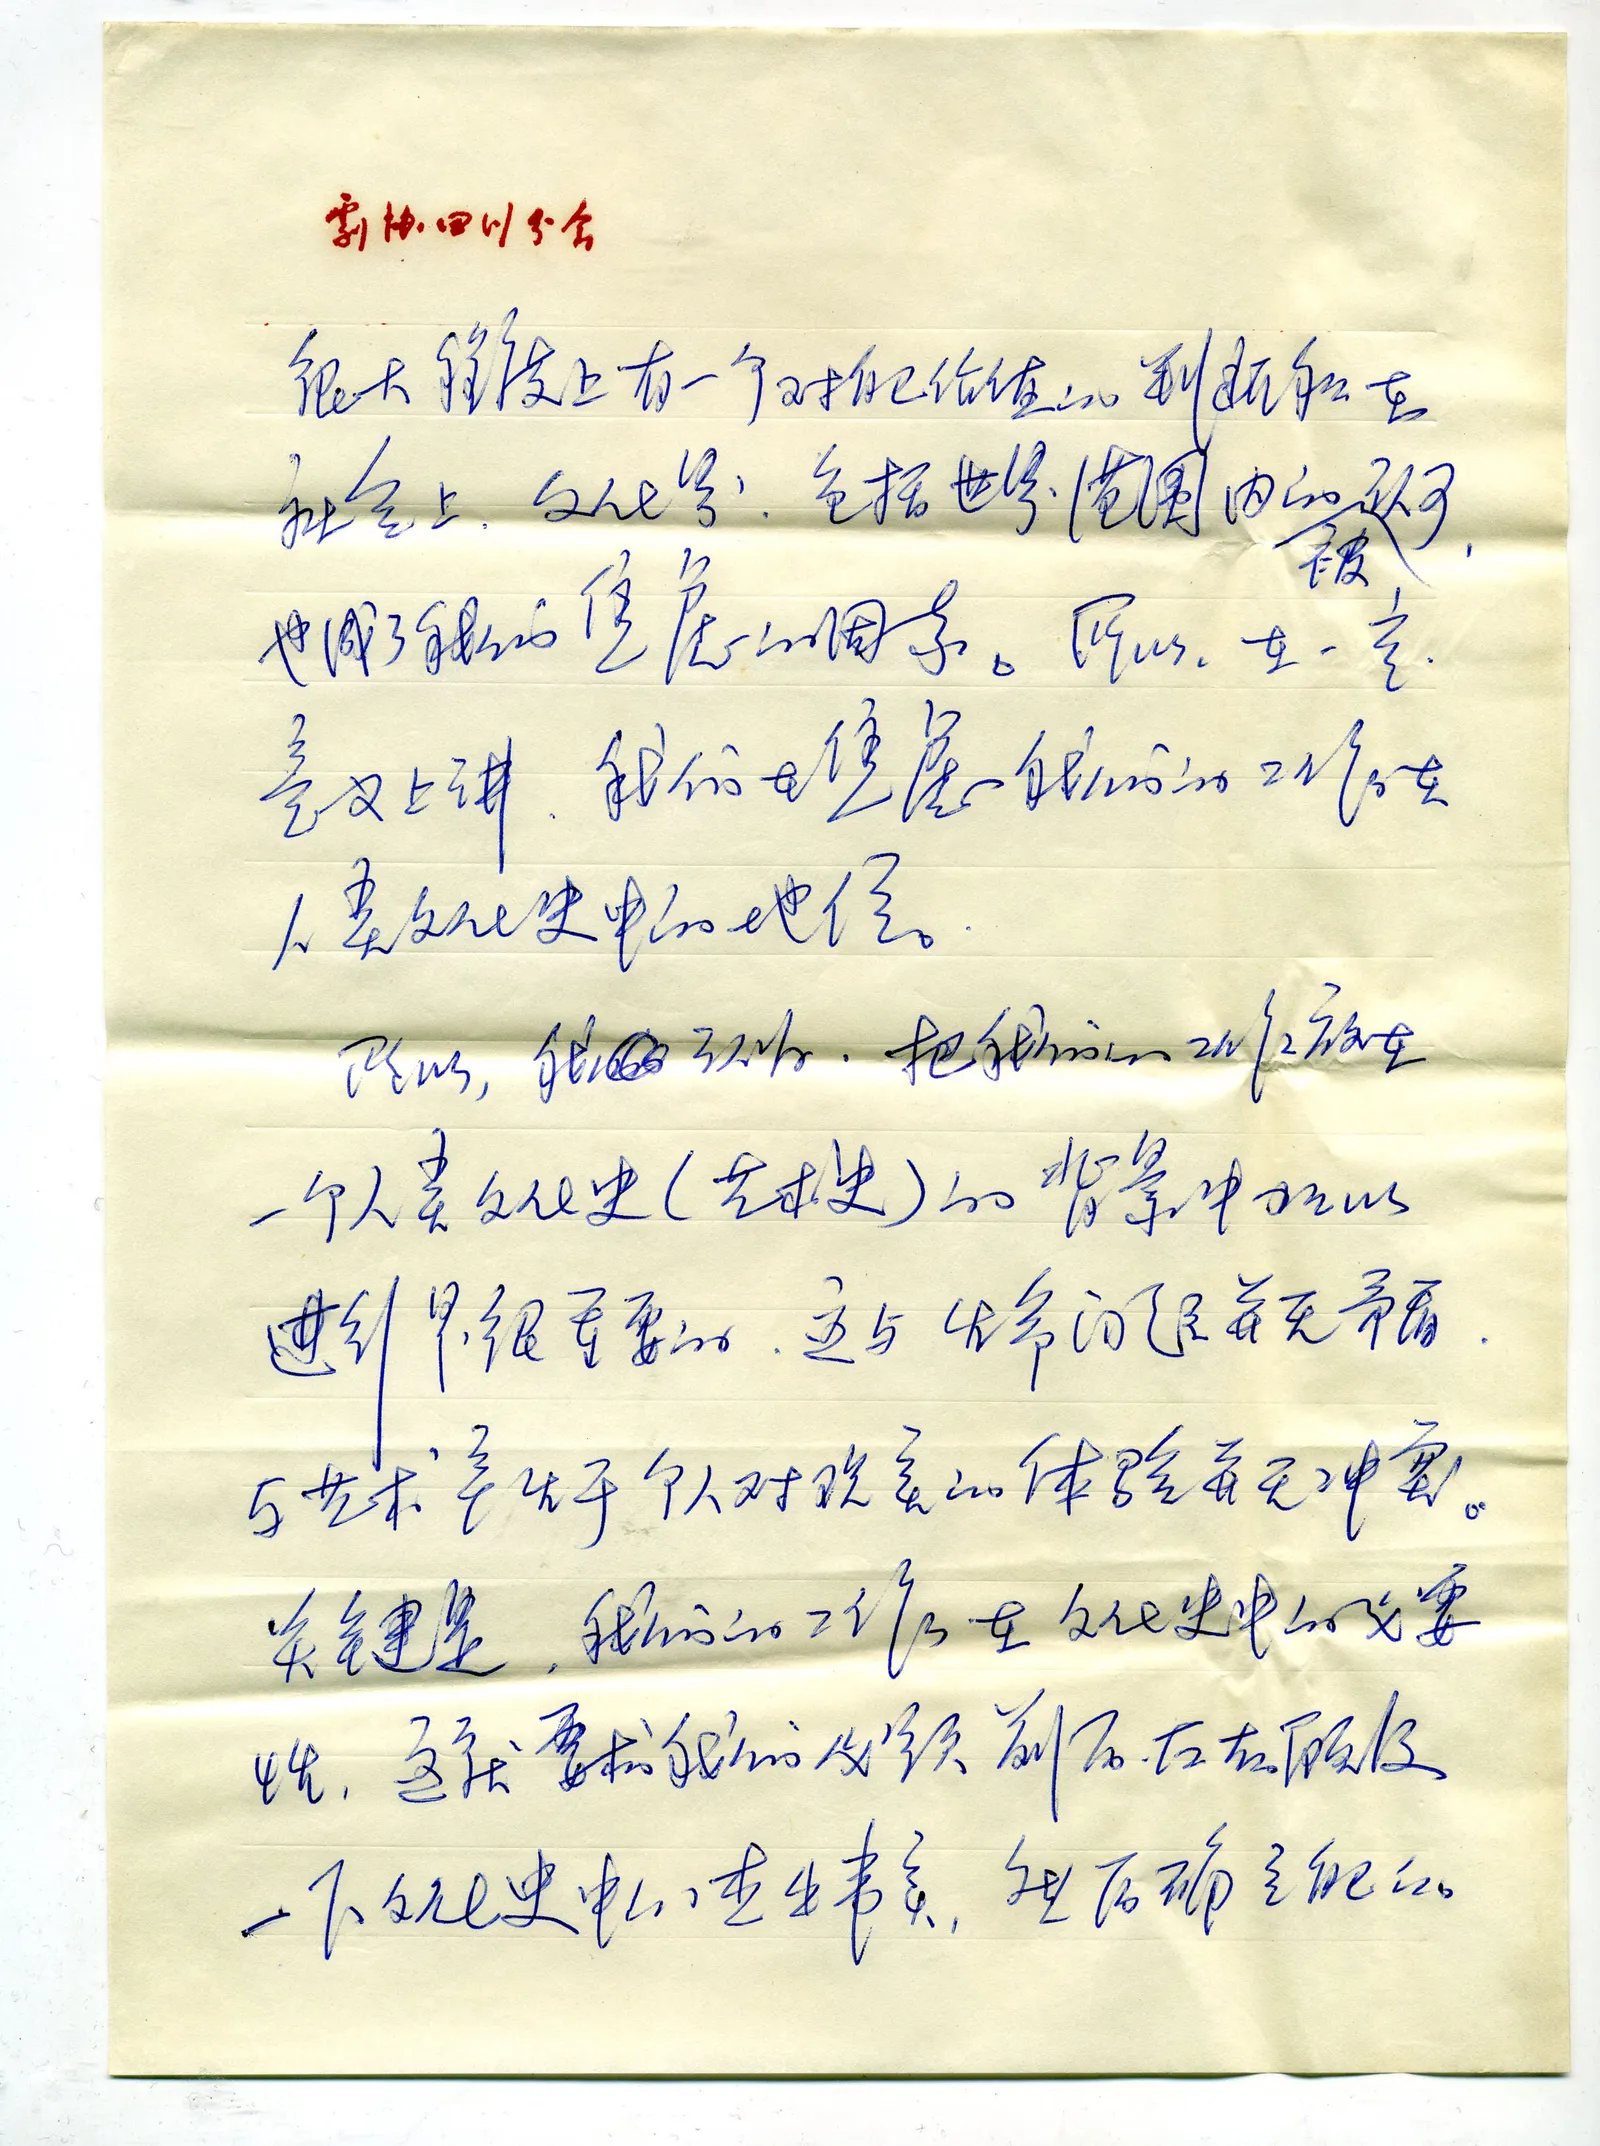 剧协四川分会
很大程度上有一个对自己价值的判断和在
社会上、文化界、包括世界范围内的不被认可,
也成了我们的焦虑的因素。所以,在一定
意义上讲,我们在焦虑我们的工作在
人类文化史中的地位。
所以,我认为,把我们的工作放在
一个人类文化史(艺术史)的背景中加以
进行是很重要的,这与生命问题并无矛盾,
与艺术产生于个人对现实的体验并无冲突。
关键是,我们的工作在文化史中的必要
性,这就要求我们必须前后左右顾及
一下文化史中的过去事实,然后确立自己的